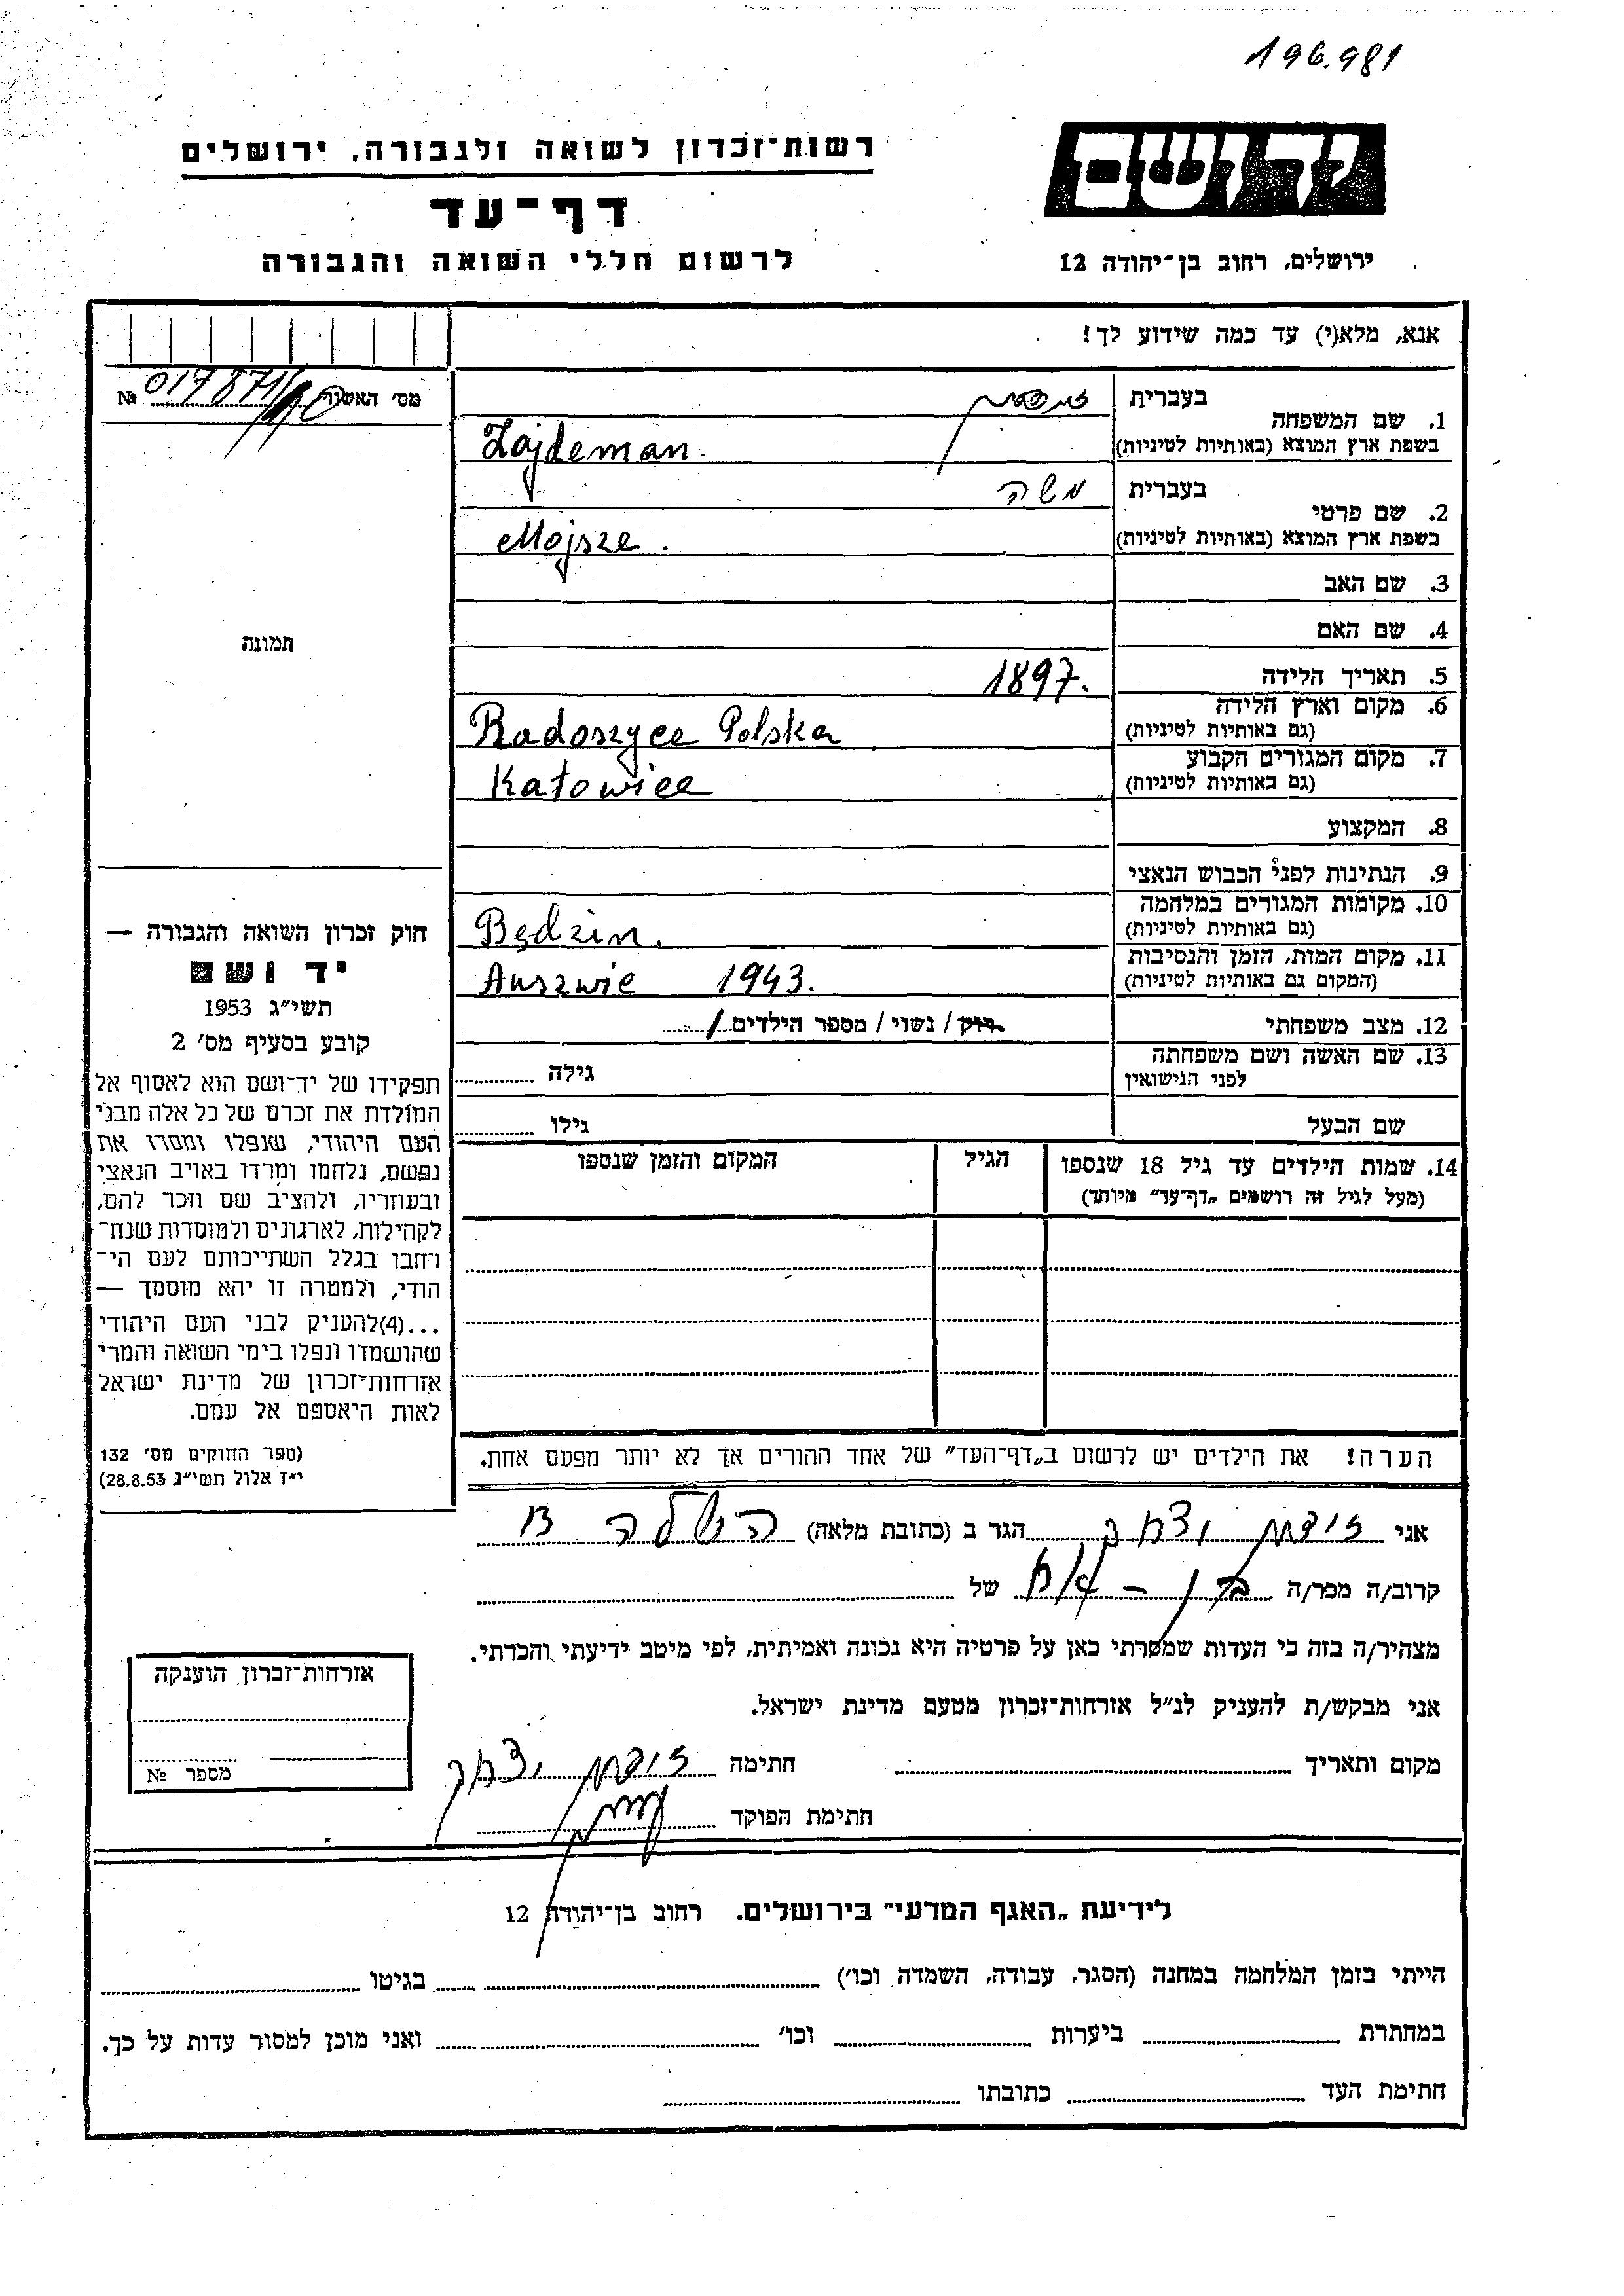 196.981
יד ושם
רשות־זכרון לשואה ולגבורה, ירושלים
דף־עד
לרשום חללי השואה והגבורה
ירושלים, רחוב בן־יהודה 12
אנא, מלא(י) עד כמה שידוע לך!
מס׳ האשור № 017871/
1. שם המשפחה
בעברית זיידמן
בשפת ארץ המוצא (באותיות לטיניות) Zajdeman.
2. שם פרטי
בעברית משה
בשפת ארץ המוצא (באותיות לטיניות) Mojsze.
3. שם האב
4. שם האם
תמונה
5. תאריך הלידה 1897.
6. מקום וארץ הלידה
(גם באותיות לטיניות) Radoszyce Polska
7. מקום המגורים הקבוע
(גם באותיות לטיניות) Katowice
8. המקצוע
9. הנתינות לפני הכבוש הנאצי
10. מקומות המגורים במלחמה
(גם באותיות לטיניות) Będzin.
11. מקום המות, הזמן והנסיבות
(המקום גם באותיות לטיניות) Auszwic 1943.
12. מצב משפחתי רוק / נשוי / מספר הילדים
13. שם האשה ושם משפחתה
לפני הנישואין
גילה
שם הבעל גילו
14. שמות הילדים עד גיל 18 שנספו
(מעל לגיל זה רושמים „דף־עד״ מיוחד)
הגיל
המקום והזמן שנספו
חוק זכרון השואה והגבורה —
יד ושם
תשי״ג 1953
קובע בסעיף מס׳ 2
תפקידו של יד־ושם הוא לאסוף אל
המולדת את זכרם של כל אלה מבני
העם היהודי, שנפלו ומסרו את
נפשם, נלחמו ומרדו באויב הנאצי
ובעוזריו, ולהציב שם וזכר להם,
לקהילות, לארגונים ולמוסדות שנח־
רחבו בגלל השתייכותם לעם הי־
הודי, ולמטרה זו יהא מוסמך —
...(4)להעניק לבני העם היהודי
שהושמדו ונפלו בימי השואה והמרי
אזרחות־זכרון של מדינת ישראל
לאות היאספם אל עמם.
(ספר החוקים מס׳ 132
י״ז אלול תשי״ג 28.8.53)
הערה! את הילדים יש לרשום ב„דף־העד״ של אחד ההורים אך לא יותר מפעם אחת.
אני זיידמן יצחק הגר ב (כתובת מלאה)
קרוב/ה מכר/ה בן – אח של
מצהיר/ה בזה כי העדות שמסרתי כאן על פרטיה היא נכונה ואמיתית, לפי מיטב ידיעתי והכרתי.
אני מבקש/ת להעניק לנ״ל אזרחות־זכרון מטעם מדינת ישראל.
מקום ותאריך חתימה זיידמן יצחק
חתימת הפוקד
אזרחות־זכרון הוענקה
מספר №
לידיעת „האגף המדעי״ בירושלים, רחוב בן־יהודה 12
הייתי בזמן המלחמה במחנה (הסגר, עבודה, השמדה וכו׳) בגיטו
במחתרת ביערות וכו׳ ואני מוכן למסור עדות על כך.
חתימת העד כתובתו